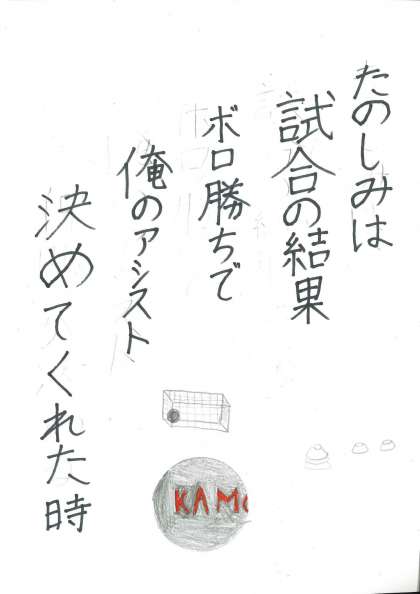 たのしみは
試合の結果
ボロ勝ちで
俺のアシスト
決めてくれた時
KAMO